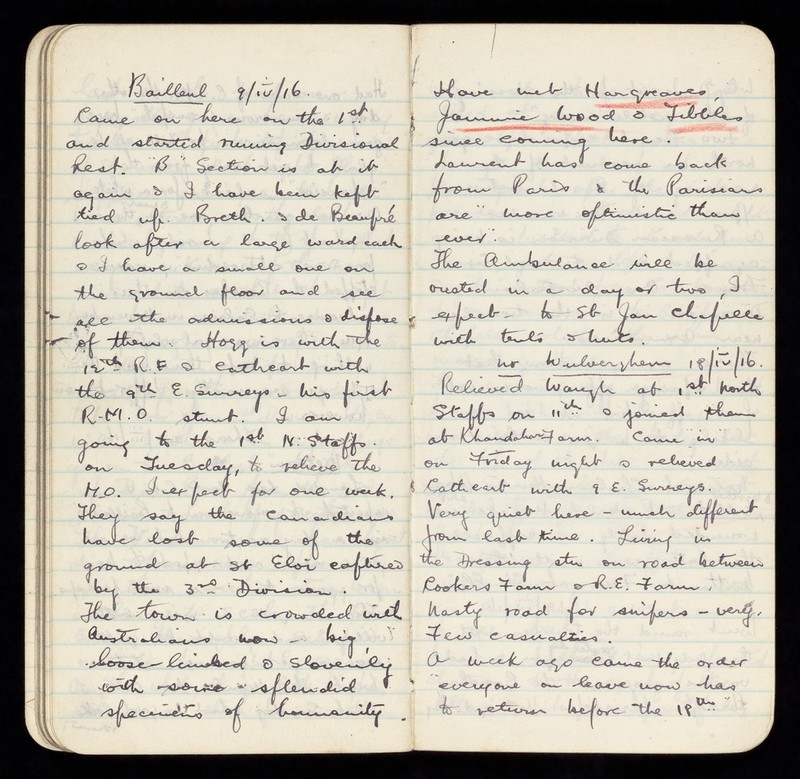 Bailleul 9/IV/16.
Came on here on the 1st
and started running Divisional
Rest. "B" Section is at it
again & I have been kept
tied up. Breth. & de Beaupré
look after a large ward each
& I have a small one on
the ground floor and see
all the admissions & dispose
of them. Hogg is with the
12th R.F & Cathcart with
the 9th E. Surreys - his first
R.M.O. stunt. I am
going to the 1st N. Staffs.
on Tuesday, to relieve the
M.O. I expect for one week.
They say the Canadians
have lost some of the
ground at St Eloi captured
by the 3rd Division.
The town is crowded with
Australians now - big,
loose-limbed & slovenly
with some splendid
specimens of humanity.
Have met Hargreaves,
Jammie Wood & Tibbles
since coming here.
Laurent has come back
from Paris & the Parisians
are "more optimistic than
ever".
The Ambulance will be
ousted in a day or two, I
expect - to St Jan Chapelle
with tents & huts.
nr Wulverghem 18/IV/16.
Relieved Waugh at 1st North
Staffs on 11th & joined them
at Khandahar Farm. Came "in"
on Friday night & relieved
Cathcart with 9 E. Surreys.
Very quiet here - much different
from last time. Living in
the Dressing stn on road between
Cookers Farm & R.E. Farm.
Nasty road for snipers - very.
Few casualties.
A week ago came the order
"everyone on leave now has
to return before the 18th